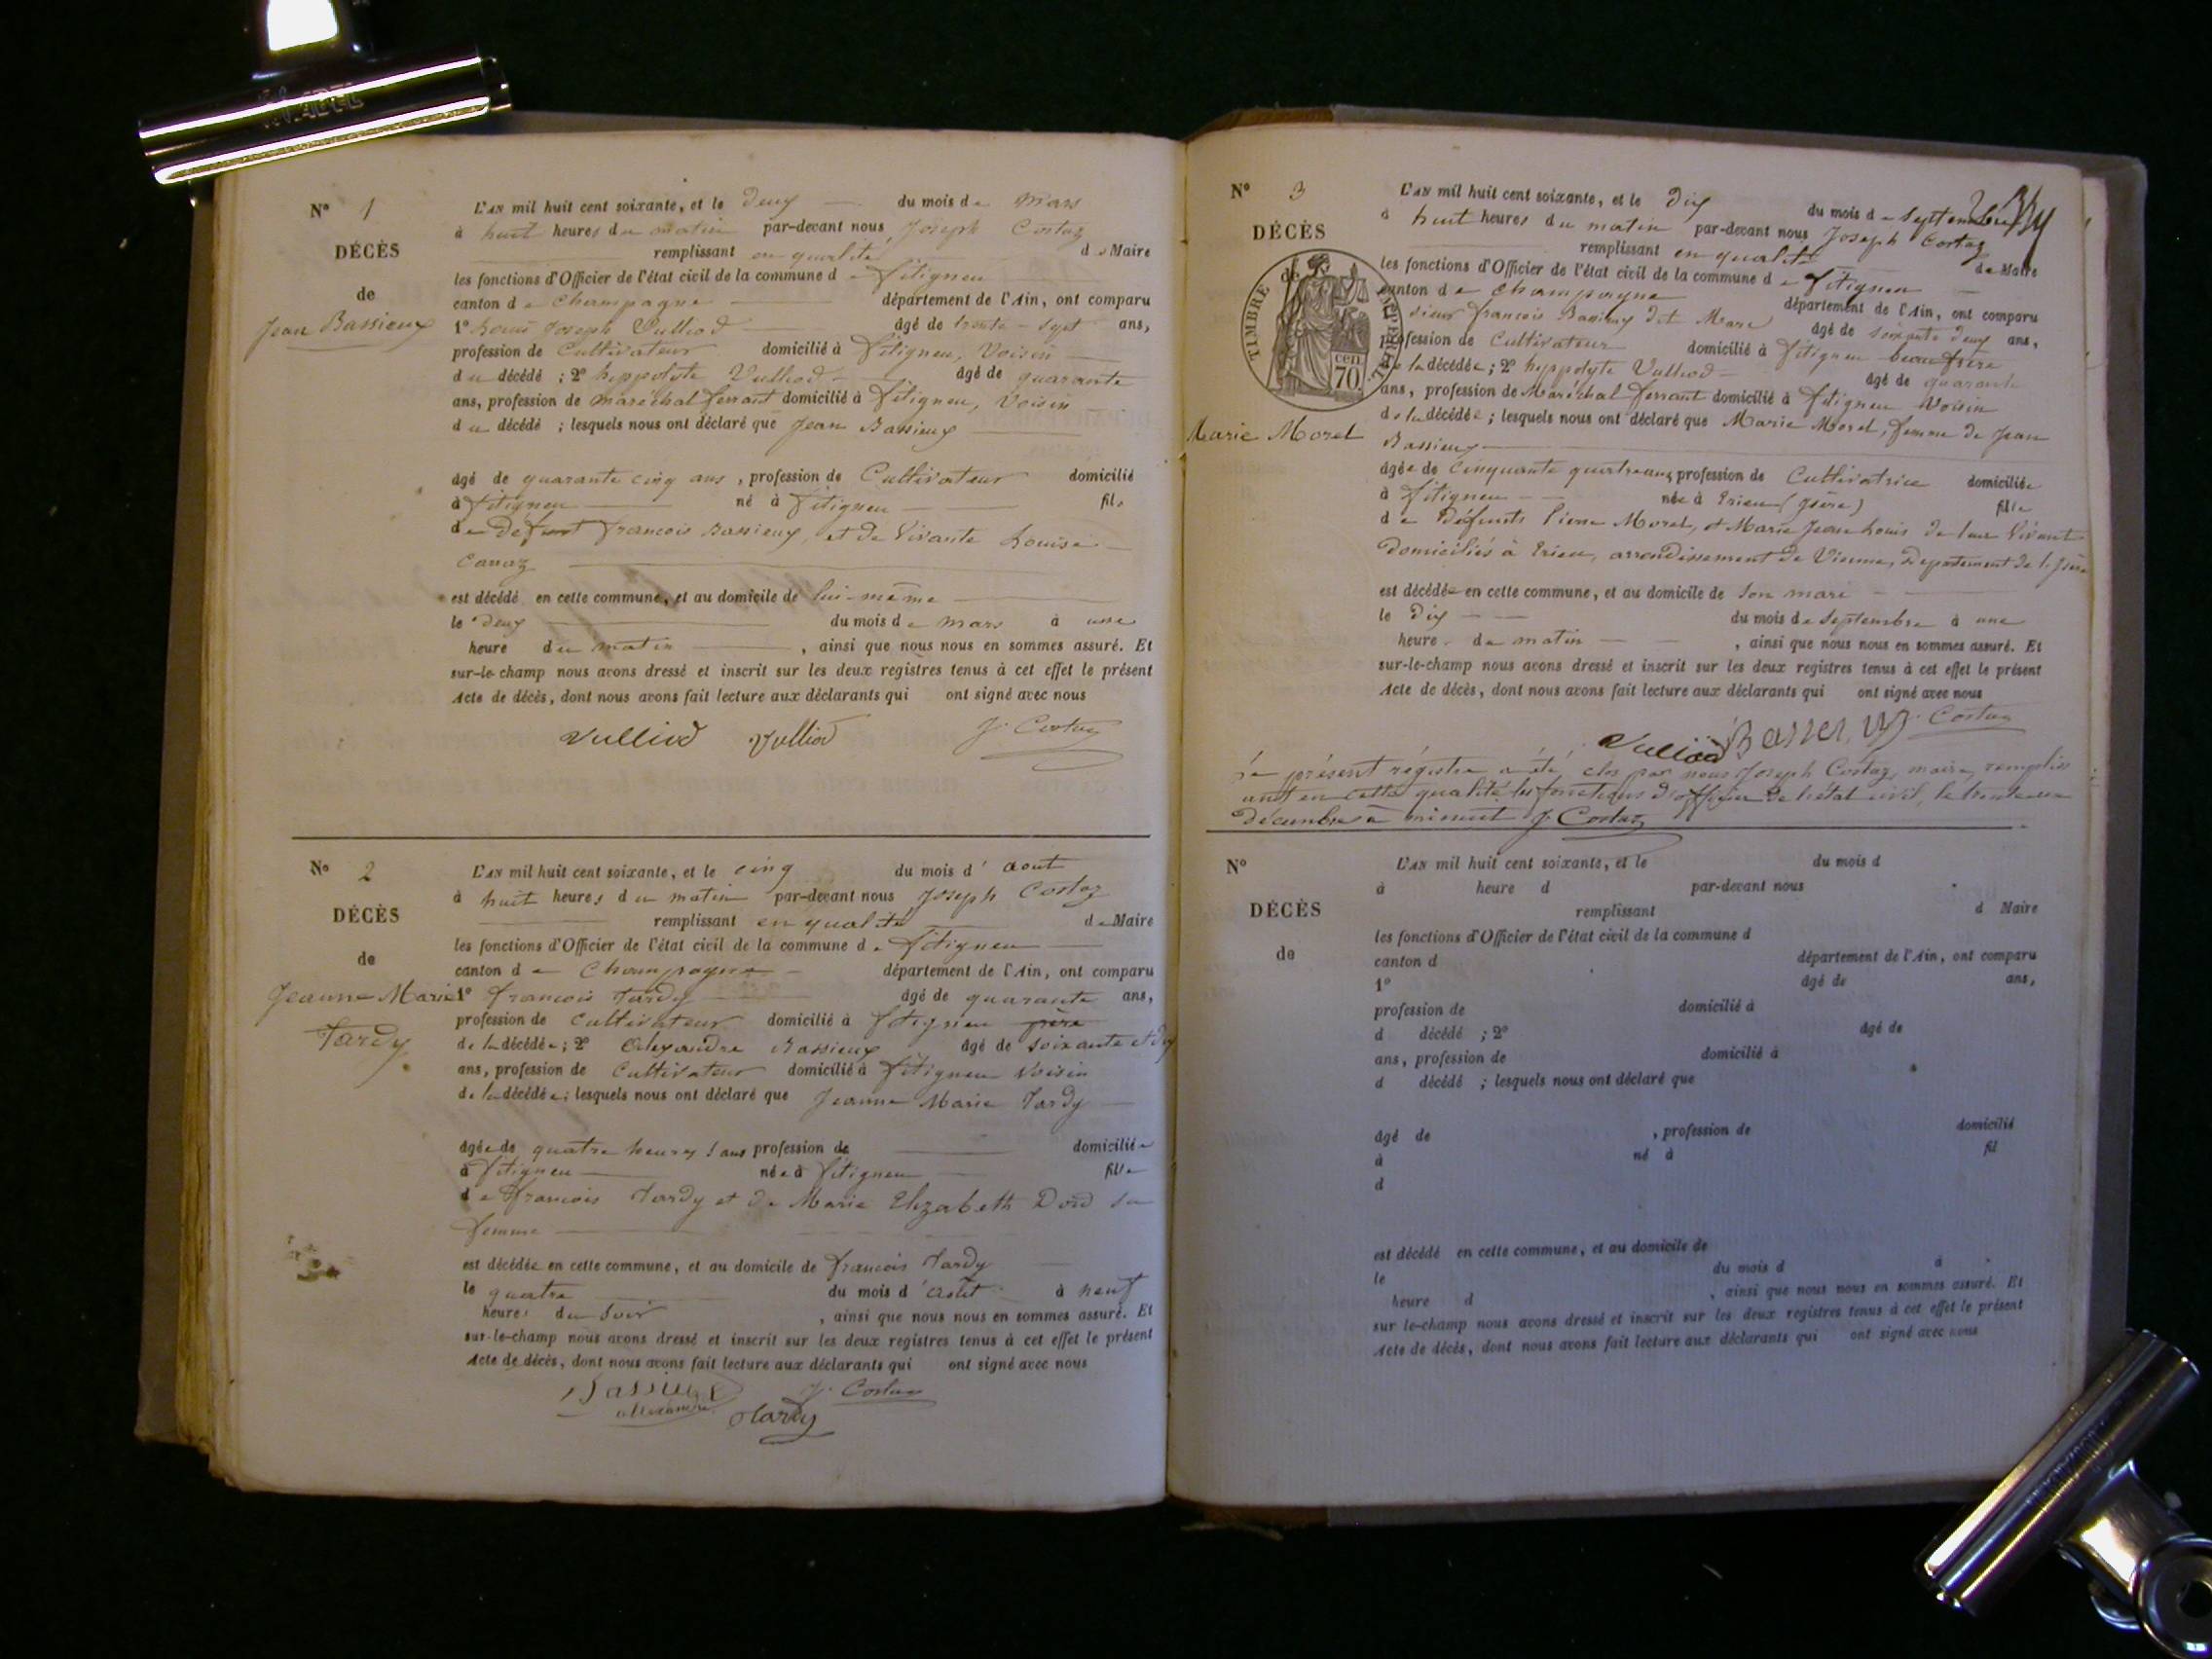 N° 1
DÉCÈS
de
Jean Bassieux
L'AN mil huit cent soixante, et le deux du mois de mars
à huit heures du matin par-devant nous Joseph Costaz
remplissant en qualité de Maire
les fonctions d'Officier de l'état civil de la commune de fitignieu
canton de Champagne département de l'Ain, ont comparu
1° Louis Joseph Vulliod âgé de trente-sept ans,
profession de Cultivateur domicilié à fitignieu, Voisin
du décédé ; 2° hippolyte Vulliod âgé de quarante
ans, profession de maréchal ferrant domicilié à fitignieu, Voisin
du décédé ; lesquels nous ont déclaré que Jean Bassieux
âgé de quarante cinq ans, profession de Cultivateur domicilié
à fitignieu né à fitignieu fils
de défunt francois Bassieux, et de Vivante Louise
Carraz
est décédé en cette commune, et au domicile de lui-même
le deux du mois de mars à une
heure du matin, ainsi que nous nous en sommes assuré. Et
sur-le-champ nous avons dressé et inscrit sur les deux registres tenus à cet effet le présent
Acte de décès, dont nous avons fait lecture aux déclarants qui ont signé avec nous
Vulliod Vulliod J. Costaz
N° 2
DÉCÈS
de
Jeanne Marie
Tardy
L'AN mil huit cent soixante, et le cinq du mois d'aout
à huit heures du matin par-devant nous Joseph Costaz
remplissant en qualité de Maire
les fonctions d'Officier de l'état civil de la commune de fitignieu
canton de Champagne département de l'Ain, ont comparu
1° francois Tardy âgé de quarante ans,
profession de Cultivateur domicilié à fitignieu père
de la décédée ; 2° Alexandre Bassieux âgé de soixante et dix
ans, profession de Cultivateur domicilié à fitignieu Voisin
de la décédée ; lesquels nous ont déclaré que Jeanne Marie Tardy
âgée de quatre heures ! ans profession de domiciliée
à fitignieu née à fitignieu fille
de francois Tardy et de Marie Elizabeth Dord sa
femme
est décédée en cette commune, et au domicile de francois Tardy
le quatre du mois d'août à neuf
heures du soir, ainsi que nous nous en sommes assuré. Et
sur-le-champ nous avons dressé et inscrit sur les deux registres tenus à cet effet le présent
Acte de décès, dont nous avons fait lecture aux déclarants qui ont signé avec nous
Bassieux J. Costaz
alexandre Tardy
N° 3
DÉCÈS
de
TIMBRE IMPÉRIAL
cen
70
Marie Morel
L'AN mil huit cent soixante, et le dix du mois de septembre
à huit heures du matin par-devant nous Joseph Costaz
remplissant en qualité de Maire
les fonctions d'Officier de l'état civil de la commune de fitignieu
canton de Champagne département de l'Ain, ont comparu
sieur francois Bassieux dit Mare âgé de soixante deux ans,
profession de Cultivateur domicilié à fitignieu beau frère
de la décédée ; 2° hyppolyte Vulliod âgé de quarante
ans, profession de Maréchal ferrant domicilié à fitignieu Voisin
de la décédée ; lesquels nous ont déclaré que Marie Morel, femme de Jean
Bassieux
âgée de cinquante quatre ans, profession de Cultivatrice domiciliée
à fitignieu née à Erieu (Isère) fille
de Défunts Pierre Morel, et Marie Jean Louis de leur Vivant
domiciliés à Erieu, arrondissement de Vienne, département de l'Isère
est décédée en cette commune, et au domicile de son mari
le dix du mois de septembre à une
heure du matin, ainsi que nous nous en sommes assuré. Et
sur-le-champ nous avons dressé et inscrit sur les deux registres tenus à cet effet le présent
Acte de décès, dont nous avons fait lecture aux déclarants qui ont signé avec nous
Vulliod Bassieux J. Costaz
Le présent régistre a été clos par nous Joseph Costaz, maire, rempliss
ant en cette qualité les fonctions d'officier de l'état civil, le trente un
décembre à minuit J. Costaz
N°
DÉCÈS
de
L'AN mil huit cent soixante, et le du mois d
à heure d par-devant nous
remplissant d Maire
les fonctions d'Officier de l'état civil de la commune d
canton d département de l'Ain, ont comparu
1° âgé de ans,
profession de domicilié à
d décédé ; 2° âgé de
ans, profession de domicilié à
d décédé ; lesquels nous ont déclaré que
âgé de , profession de domicilié
à né à fil
d
est décédé en cette commune, et au domicile de
le du mois d à
heure d , ainsi que nous nous en sommes assuré. Et
sur le-champ nous avons dressé et inscrit sur les deux registres tenus à cet effet le présent
Acte de décès, dont nous avons fait lecture aux déclarants qui ont signé avec nous